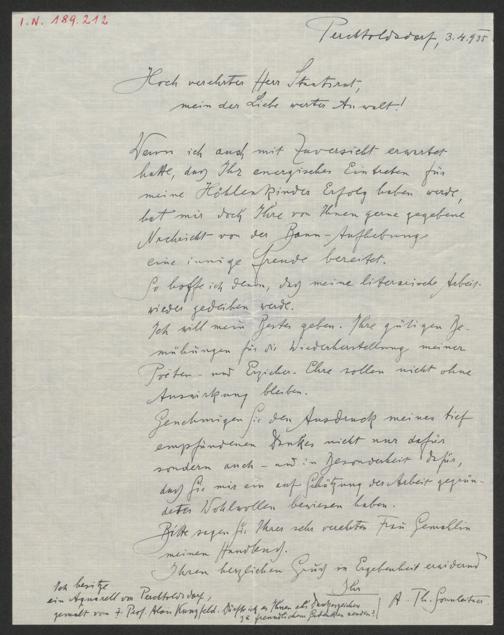 I.N. 189.212
Perchtoldsdorf, 3.4.935
Hoch verehrter Herr Staatsrat,
mein der Liebe werter Anwalt!
Wenn ich auch mit Zuversicht erwartet
hatte, dass Ihr energisches Eintreten für
meine Höhlenkinder Erfolg haben werde,
hat mir doch Ihre von Ihnen gerne gegebene
Nachricht von der Bann-Aufhebung
eine innige Freude bereitet.
So hoffe ich denn, dass meine literarische Arbeit
wieder gedeihen werde.
Ich will mein Bestes geben. Ihre gütigen Be-
mühungen für die Wiederherstellung meiner
Poeten- und Erzieher-Ehre sollen nicht ohne
Auswirkung bleiben.
Genehmigen Sie den Ausdruck meines tief
empfundenen Dankes nicht nur dafür
sondern auch - und in Besonderheit dafür,
dass Sie mir ein auf Schätzung der Arbeit gegrün-
detes Wohlwollen bewiesen haben.
Bitte sagen Sie Ihrer sehr verehrten Frau Gemahlin
meinen Handkuss.
Ihren herzlichen Gruss in Ergebenheit erwidernd
Ihr
A. Th. Sonnleitner
Ich besitze
ein Aquarell von Perchtoldsdorf,
gemalt von Prof. Alois
Dürfte ich es Ihnen als
zu freundlichem Gedenken senden?